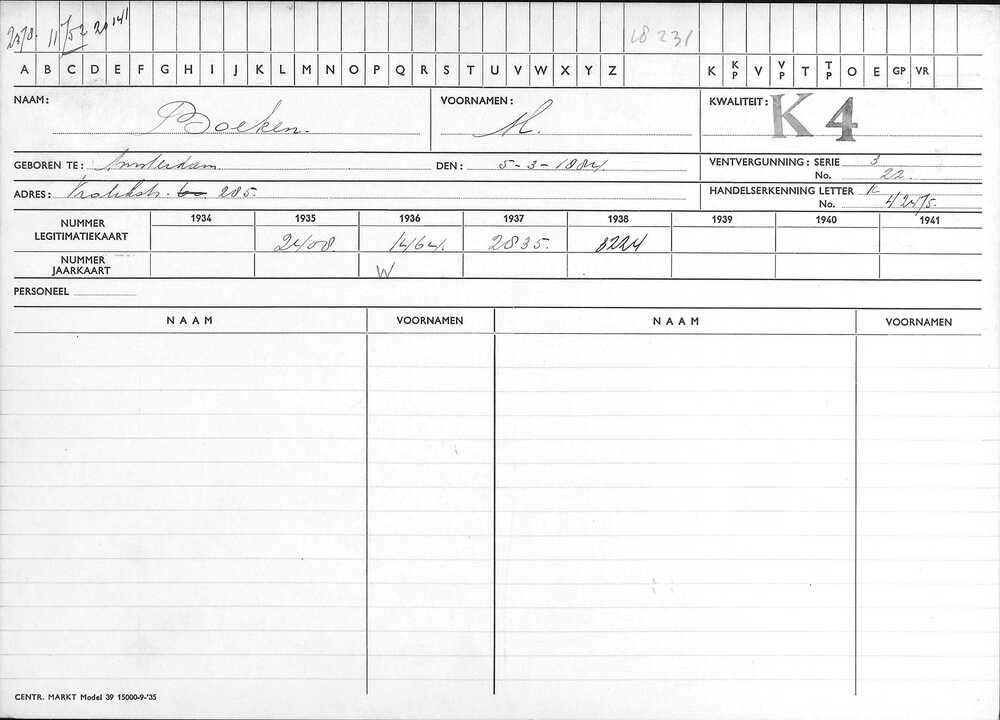 2070. 11/52 20 141 18231
A B C D E F G H I J K L M N O P Q R S T U V W X Y Z K KP V VP T TP O E GP VR
NAAM: Boeken. VOORNAMEN: M. KWALITEIT: K 4
GEBOREN TE: Amsterdam DEN: 5-3-1884. VENTVERGUNNING: SERIE 3
No. 22.
ADRES: 285. HANDELSERKENNING LETTER K
No. 42475.
NUMMER LEGITIMATIEKAART 1934 1935 1936 1937 1938 1939 1940 1941
2408 1464. 2835. 3224
NUMMER JAARKAART W
PERSONEEL
NAAM VOORNAMEN NAAM VOORNAMEN
CENTR. MARKT Model 39 15000-9-'35